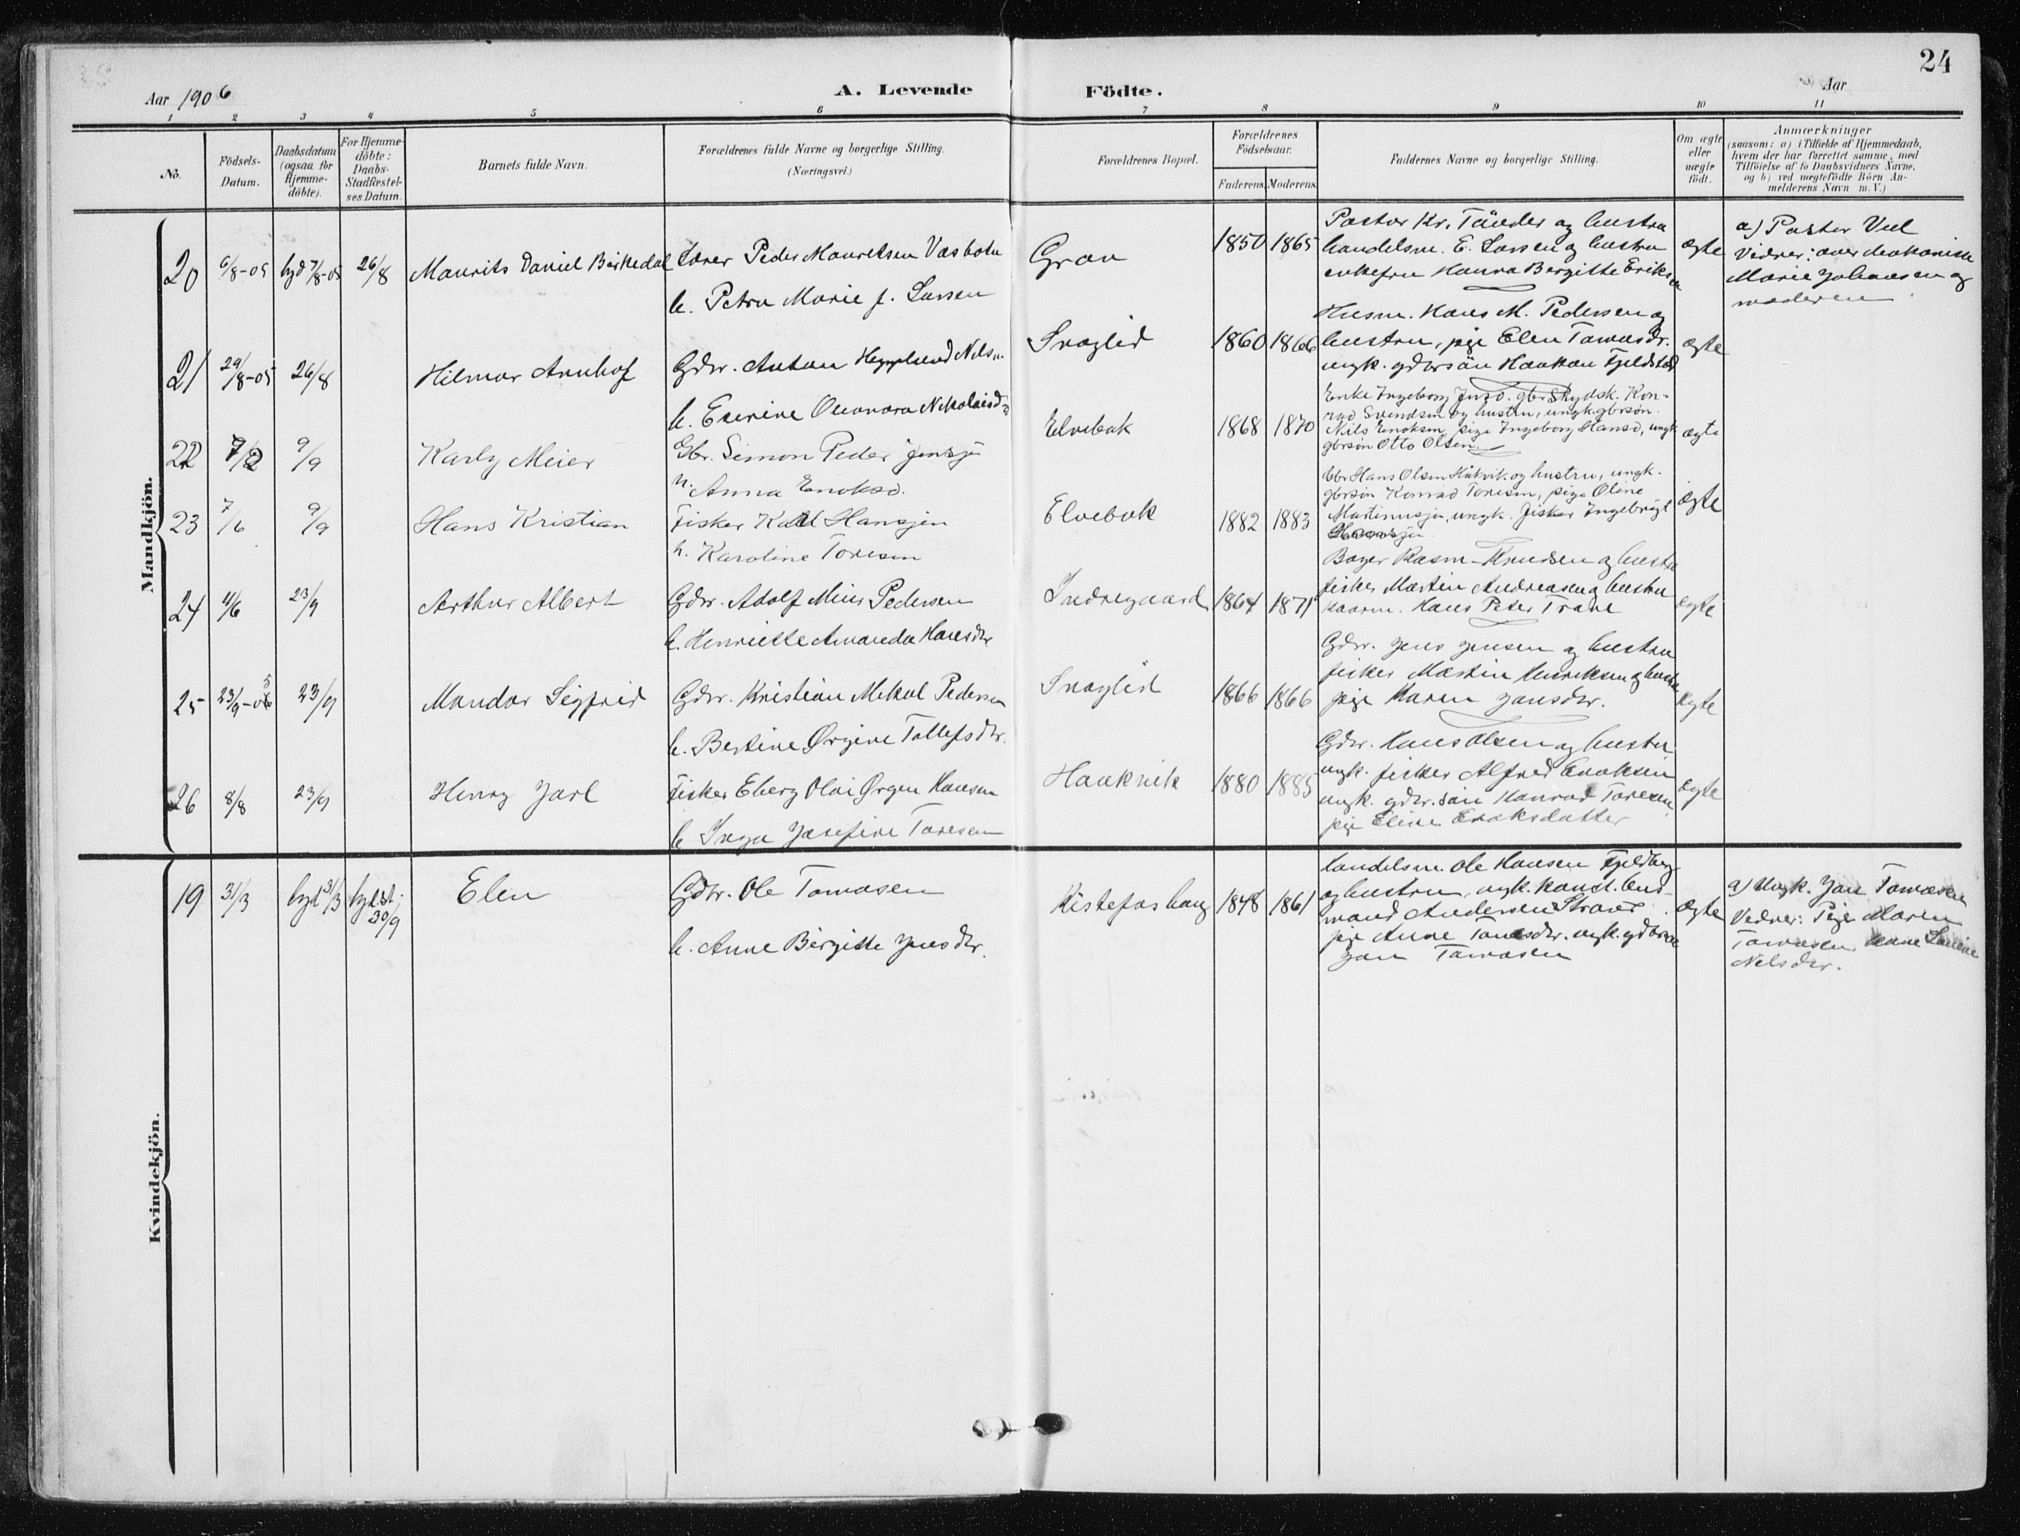 24
Aar 1906
A. Levende Födte.
Aar
1 2 3 4 5 6 7 8 9 10 11
No.
Födsels-Datum.
Daabsdatum (ogsaa for Hjemme-döbte).
For Hjemme-döbte: Daabs-Stadfæstel-ses Datum.
Barnets fulde Navn.
Forældrenes fulde Navne og borgerlige Stilling.
(Næringsvei.)
Forældrenes Bopæl.
Forældrenes Födselsaar.
Faderens. Moderens.
Faddernes Navne og borgerlige Stilling.
Om ægte eller uægte födt.
Anmærkninger
(saasom: a) i Tilfælde af Hjemmedaab,
hvem der har forrettet samme, med
Tilföielse af to Daabsvidners Navne,
og b) ved uægtefödte Börn An-
melderens Navn m. V.)
Mandkjön.
20 6/8-05 hjd 7/8-05 26/8 Maurits Daniel Birkedal
Lærer Peder Mauritsen Vasbotn
h. Petra Marie f. Larsen
Gran 1850 1865
Pastor Kr. Tönder og hustru
handelsm. E. Larsen og hustru
enkefru Hanna Birgitte Eriksen
ægte
a) Pastor Ved
Vidner: diakonisse
Marie Johansen og
moderen
21 29/8-05 26/8 Hilmar Arnhof
Gdbr. Anton Nils
h. Eserine Eleonora Nikolaisd
Snoglid 1860 1866
Husm. Hans M. Pedersen og
hustru, pige Elen Tomasdr.
ungk. gdbrsön Haakon Fjeldstad
ægte
22 7/2 9/9 Karly Meier
Gbr. Simon Peder Jensen
h. Anna Enoksd.
Elvebak 1868 1870
Enke Ingeborg Jensd. gbr Skydsk. Kon-
rad Svendsen og hustru, ungk. gbrsön
Nils Enoksen, pige Ingeborg Hansd, ungk
gbrsön Otto Olsen
ægte
23 7/6 9/9 Hans Kristian
Fisker Karl Hansen
h. Karoline Toresen
Elvebak 1882 1883
Gbr Hans Olsen Håkvik og hustru, ungk.
gbrsön Konrad Toresen, pige Oline
Martinusen, ungk. fisker Ingebrigt
Hansen
ægte
24 4/6 23/9 Arthur Albert
Gdbr. Adolf Meier Pedersen
h. Henriette Amanda Hansdr
Indregaard 1864 1871
Bager Rasm. Knudsen og hustru
fisker Martin Andreasen og hustru
Hans Peter Trane
ægte
25 23/9-05 23/9 Mandor Sigfrid
Gdbr. Kristian Mikal Pedersen
h. Bertine Ørgine Tollefsdr.
Snoglid 1866 1866
Gdbr. Jens Jensen og hustru
fisker Martin Henriksen og hustru
pige Karen Jensdr.
ægte
26 8/8 23/9 Henry Jarl
Fisker Eberg Olai Ørgen Hansen
h Inga Josefine Toresen
Haakvik 1880 1885
Gdbr. Hans Olsen og hustru
ungk. fisker Alfred Enoksen
ungk. gdbr. sön Konrad Toresen
pige Eline Enoksdatter
ægte
Kvindekjön.
19 31/3 hjd 31/3 hjd. st. 30/9 Elen
Gdbr. Ole Tomasen
h. Anne Birgitte Jensdr.
Ristefoshaug 1848 1861
Handelsm. Ole Hansen Fjeldberg
og hustru, ungk. hus-
mand Andersen
pige Anne Tomasdr. ungk. gdbrsön
Jon Tomasen
ægte
a) Ungk. Jon Tomasen
Vidner: Pige Maren
Tomasen,
Nilsdr.